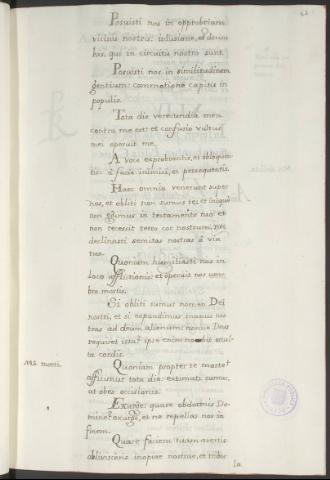 62
Posuisti nos in opprobrium
vicinis nostris: et derisum
his, qui in circuitu nostro sunt.
Posuisti nos in similitudinem
gentium: commotione capitis in
populis.
Tota die verecundia mea
contra me est: et confusio vultus
mei operuit me.
A voce exprobrantis, et obloquen
tis: à facie inimici, et persequentis.
Haec omnia venerunt super
nos, et obliti non sumus te: et iniquè
non egimus in testamento tuo: et
non recessit retro cor nostrum: et
declinasti semitas nostras à via
tua.
Quoniam humiliasti nos in
loco afflictionis: et operuit nos um
bra mortis.
Si obliti sumus nomen Dei
nostri, et si expandimus manus nos
tras ad deum alienum: nonne Deus
requiret ista? ipse enim novit abscon
cordis.
Quoniam propter te morte
afficimur tota die: estimati sumus,
ut oves occisionis.
Exurge: quare obdormis Do
mine? exurge, et ne repellas nos in
finem.
Quare faciem tuam avertis
oblivisceris inopiae nostrae, et tribu
la